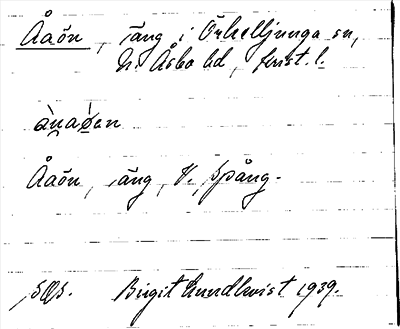 Åaön, äng i Örkelljunga sn,
N. Åsbo hd, krist. l.
Åaön, äng, V, Spång.
Birgit Lundkvist 1939.